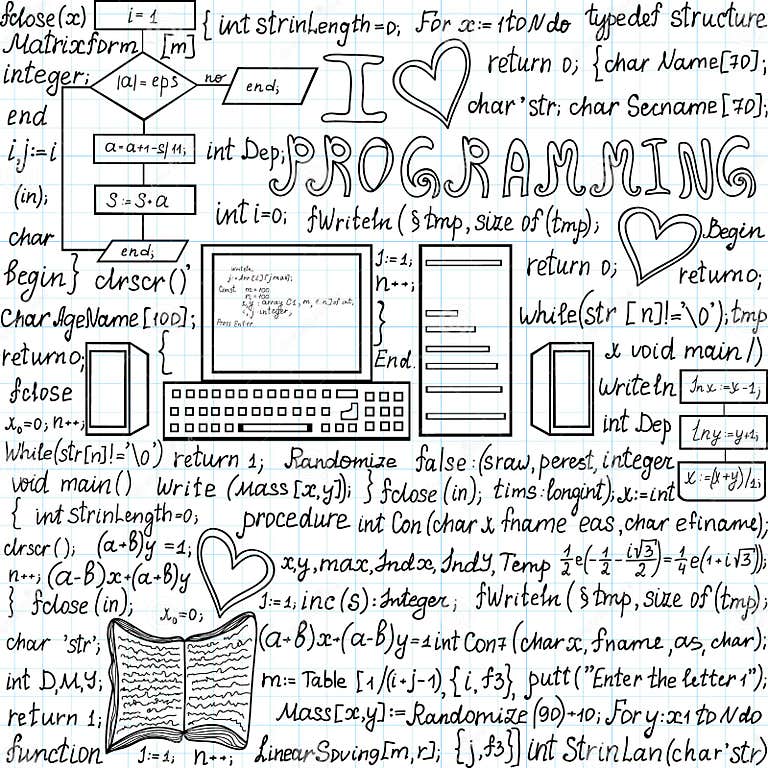 fclose(x)
i=1
{ int strinLength=0; For x:=1toNdo typedef structure
Matrixform [m]
integer;
|a|=eps
no
end;
I
return 0; {char Name[70];
end
char 'str; char Secname [70];
i,j:=i
a=a+1-s/11;
int Dep;
PROGRAMMING
(in);
S:=S+a
int i=0; fWriteln ( § tmp, size of (tmp);
char
end;
Begin
begin} clrscr()'
return 0;
return0;
writeln;
Const m=100
n=100
integer;
Press Enter
I:=1;
n++;
}
End.
Char AgeName [100];
{
while(str [n]!='\0'); tmp
return0;
x void main /)
fclose
writeln
Inx:=x-1;
x₀=0; n++;
int Dep
Iny:=y+1;
While(str[n]!='\0') return 1; Randomize false:(sraw, perest, integer
x:=(x+y)/1;
void main() Write (Mass[x,y]); } fclose (in); tims:longint); x:=int
{ int strinLength=0; procedure int Con (char x, fname eas, char efiname);
clrscr(); (a+b)y =1;
xy, max, Indx, IndY, Temp ½e(-½-i√3/2)=¼e(1+i√3));
n++; (a-b)x+(a+b)y
} fclose (in);
I:=1; inc(s):Integer; fWriteln ( § tmp, size of (tmp);
x₀=0;
char 'str'; (a+b)x+(a-b)y=1 int Con7 (char x, fname, as, char);
int D,M,Y; m:= Table [1/(i+j-1), {i, f3}, putt ("Enter the letter 1");
return 1; Mass[x,y]:=Randomize (90)+10; For y:x1 to Ndo
function I:=1; n++; LinearSoving[m,r]; {j,f3}] int StrinLan(char'str)